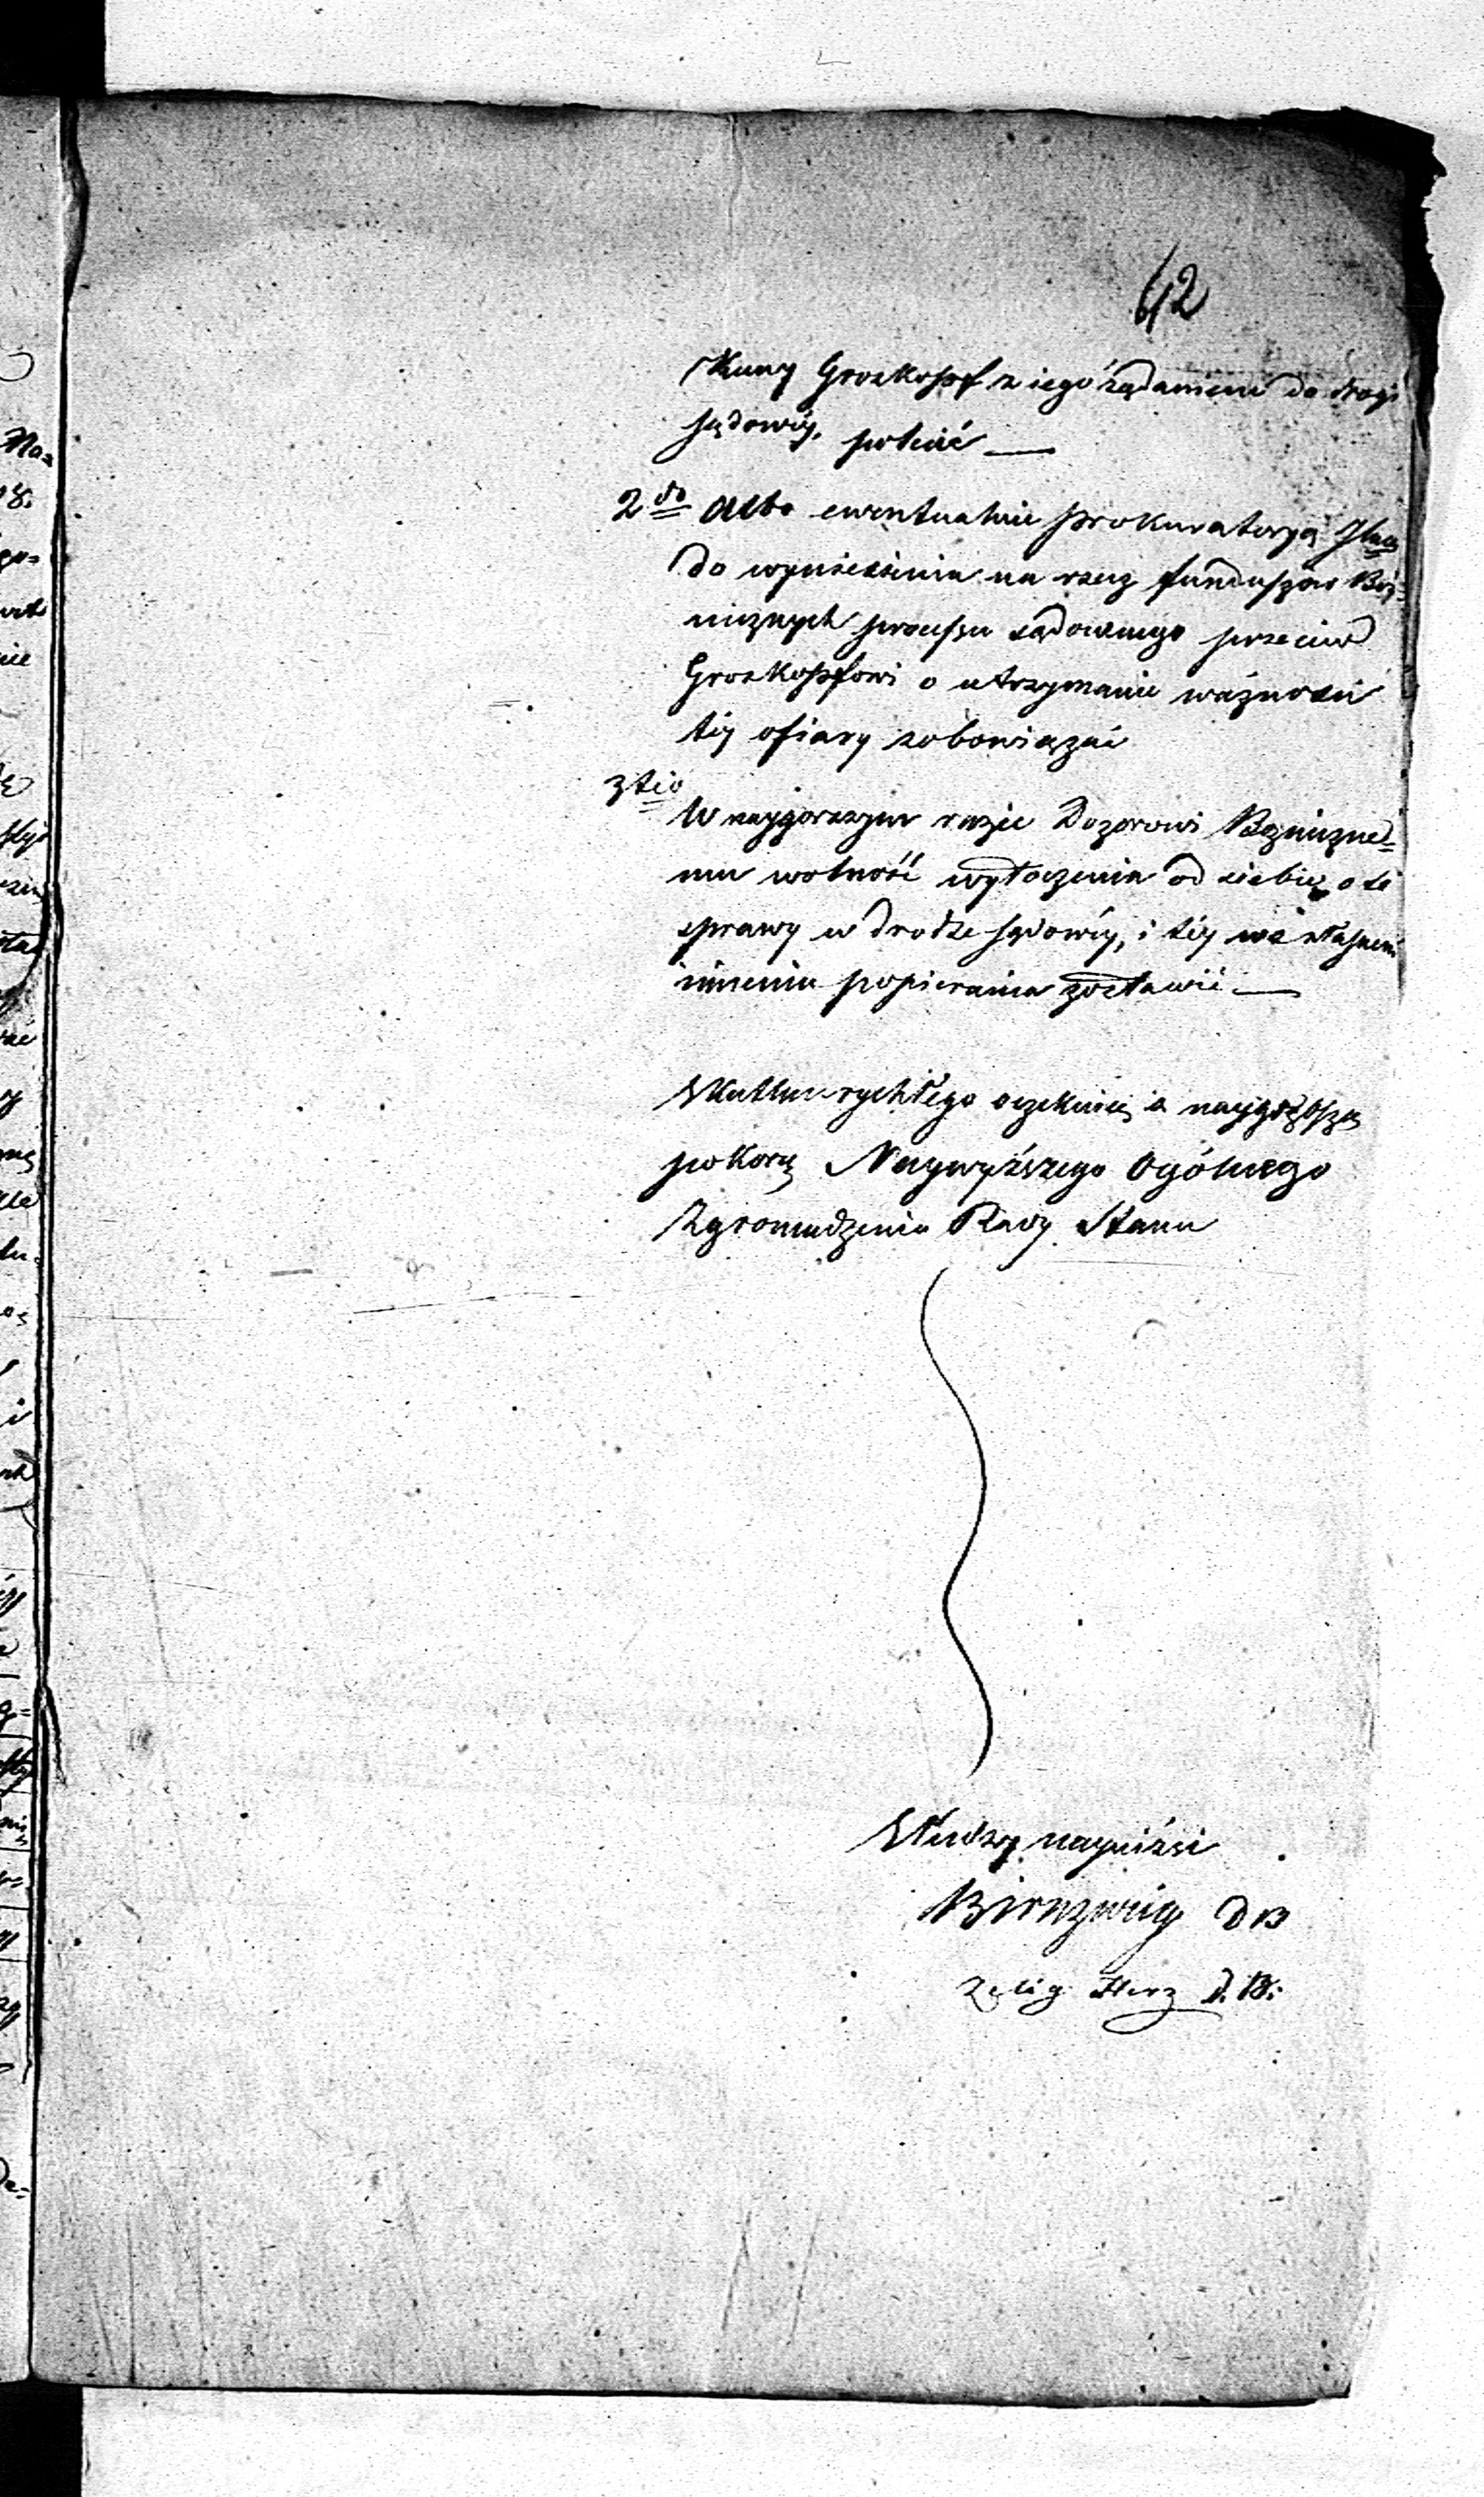 612
Kuny Groskopf z iego żądaniem do drogi
sądowéy, poleić —
2do Albo ewentualnie Prokuratoryą
do wyniesienia na rzecz funduszów Boż=
nicznych processu sądownego przeciw
Groskopfowi o utrzymanie ważności
téy ofiary zobowiązać
3tio
W naygorszym razie Dozorowi Bozniczne=
mu wolność wytoczenia od siebie o té
sprawy w drodze sądowéy, i téy we własnem
imieniu popierania zostawić —
Skutku rychłego oczekuiąc z naygłębszą
pokorą Naywyższego Ogólnego
Zgromadzenia Rady Stanu
Słudzy nayniżsi
Birnzweig DB
Zelig Herz D. B: